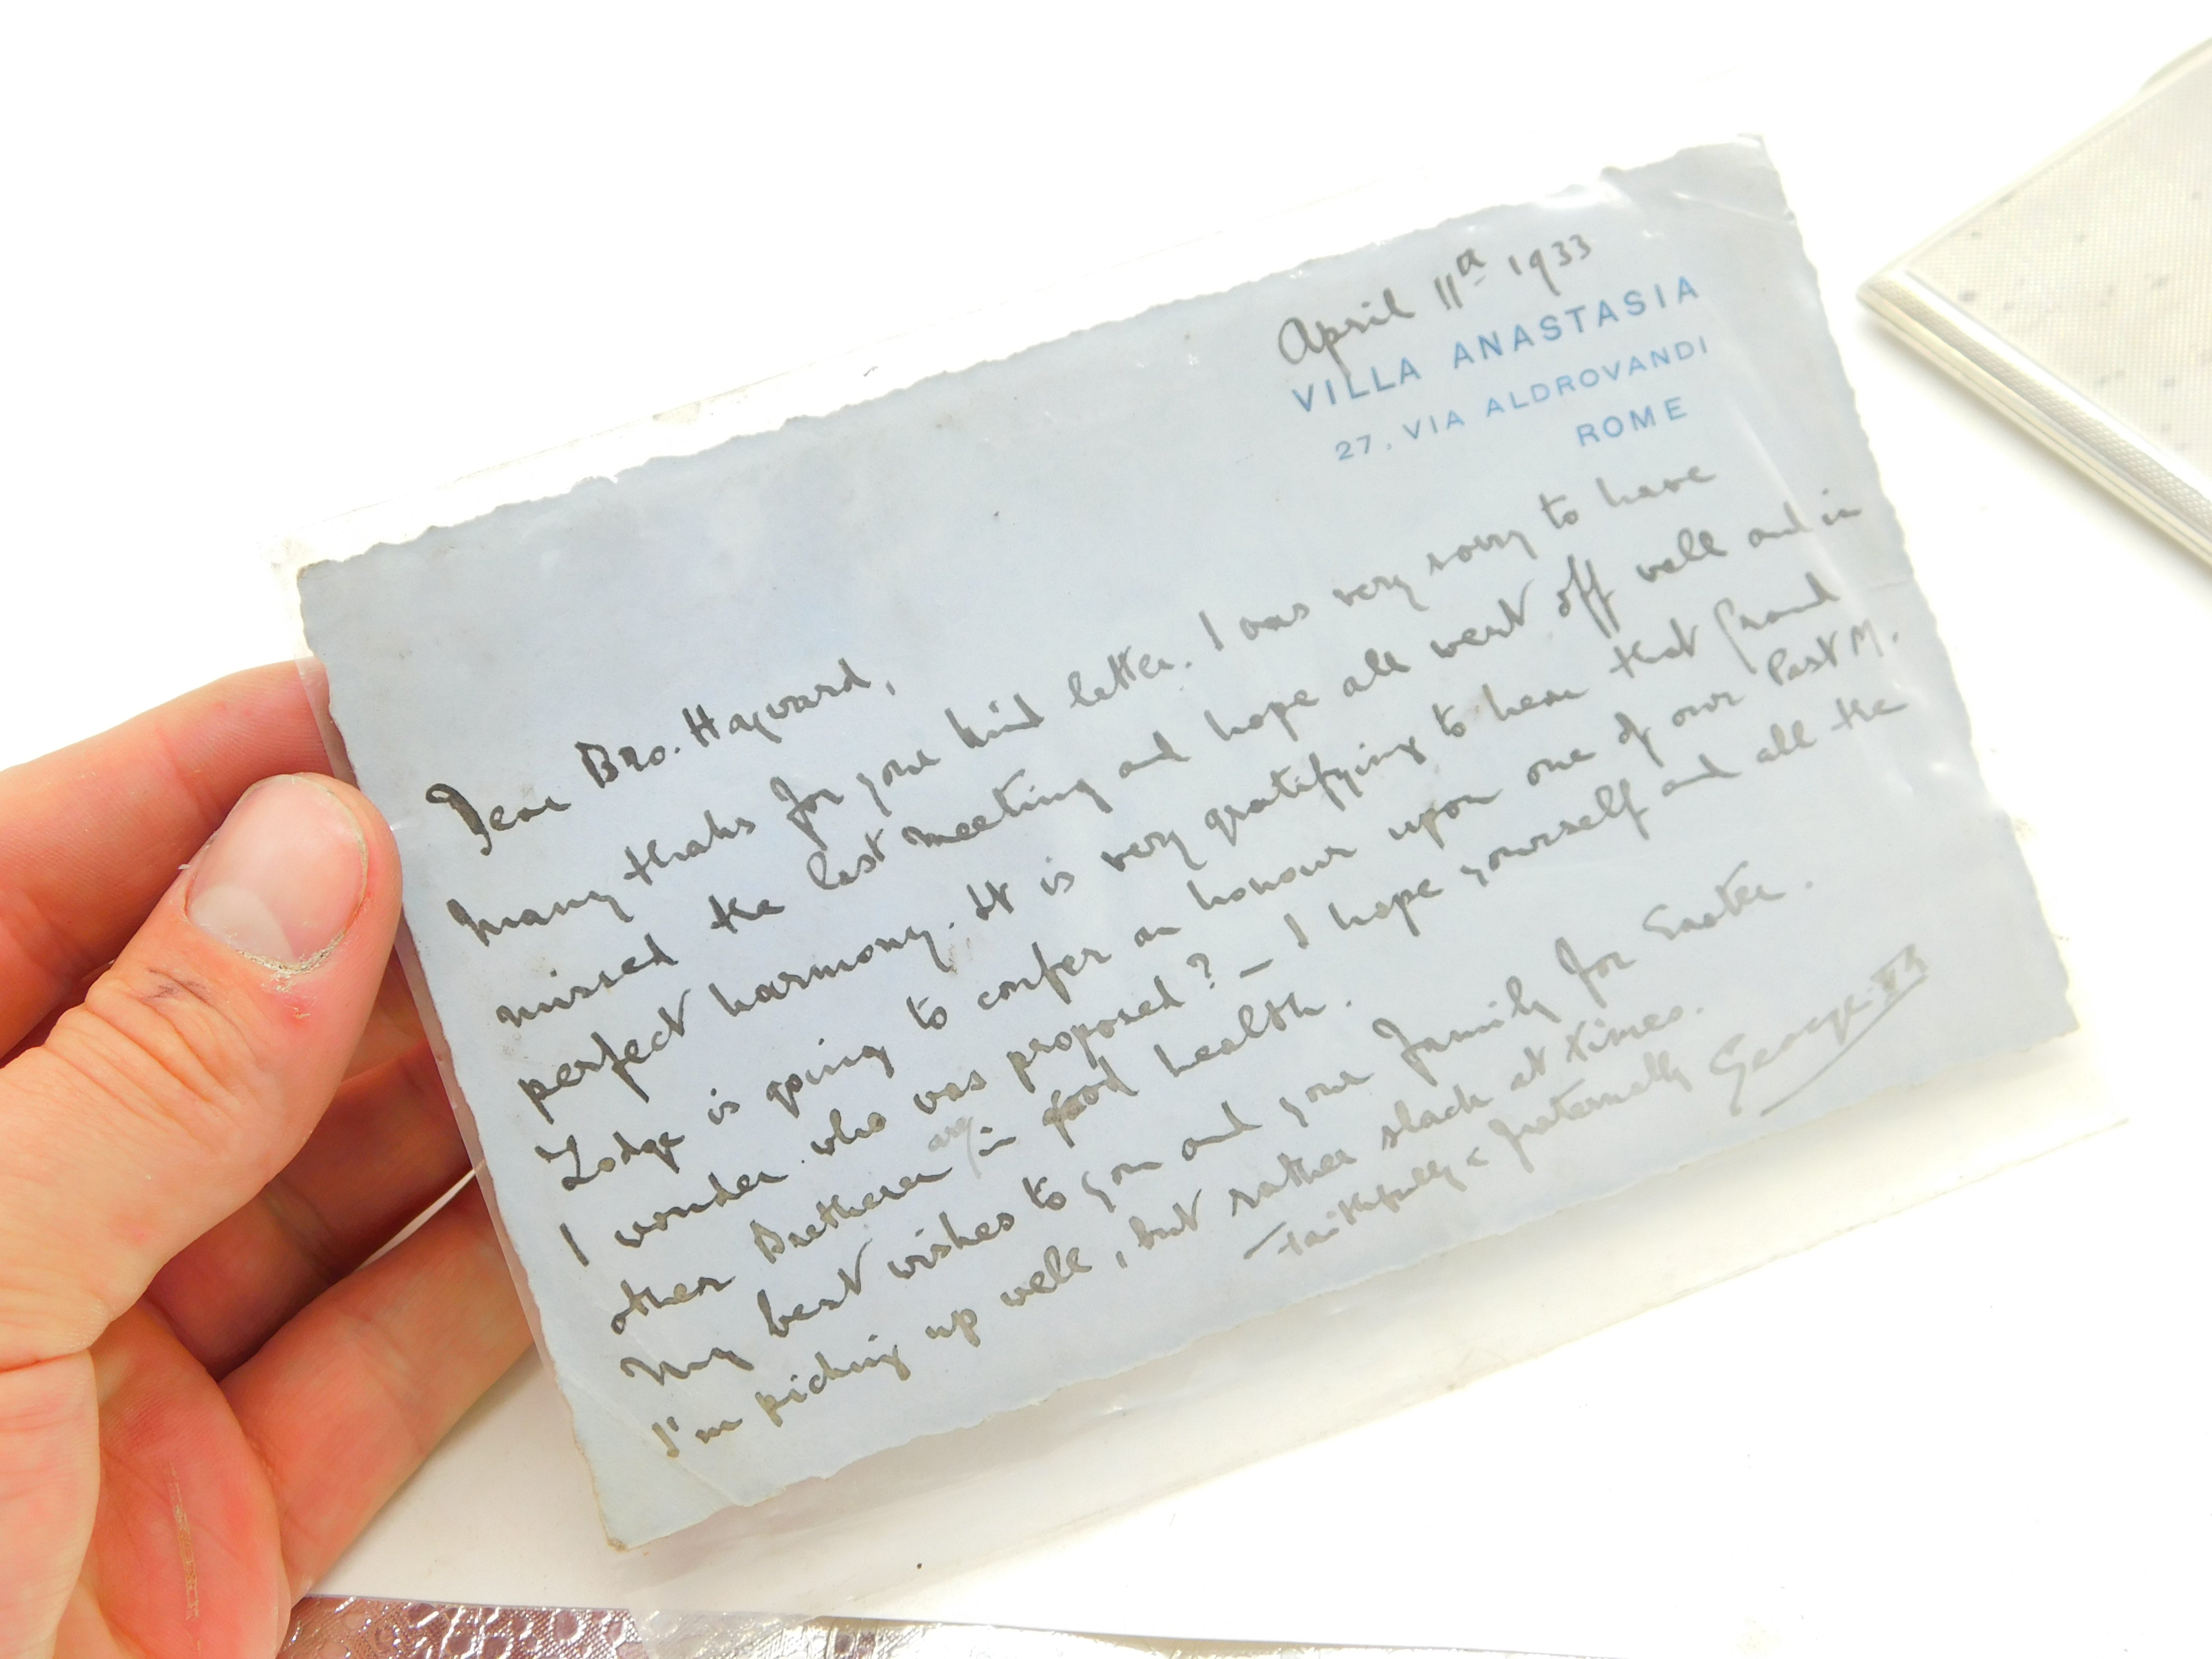 April 11th 1933
VILLA ANASTASIA
27. VIA ALDROVANDI
ROME
Dear Bro. Hayward,
Many thanks for your kind letter. I was very sorry to have
missed the last meeting and hope all went off well and in
perfect harmony. It is very gratifying to hear that Grand
Lodge is going to confer an honour upon one of our Past M.
I wonder who was proposed? — I hope yourself and all the
other Brethren are in good health.
My best wishes to you and your family for Easter.
I'm picking up well, but rather slack at times.
Faithfully & fraternally George